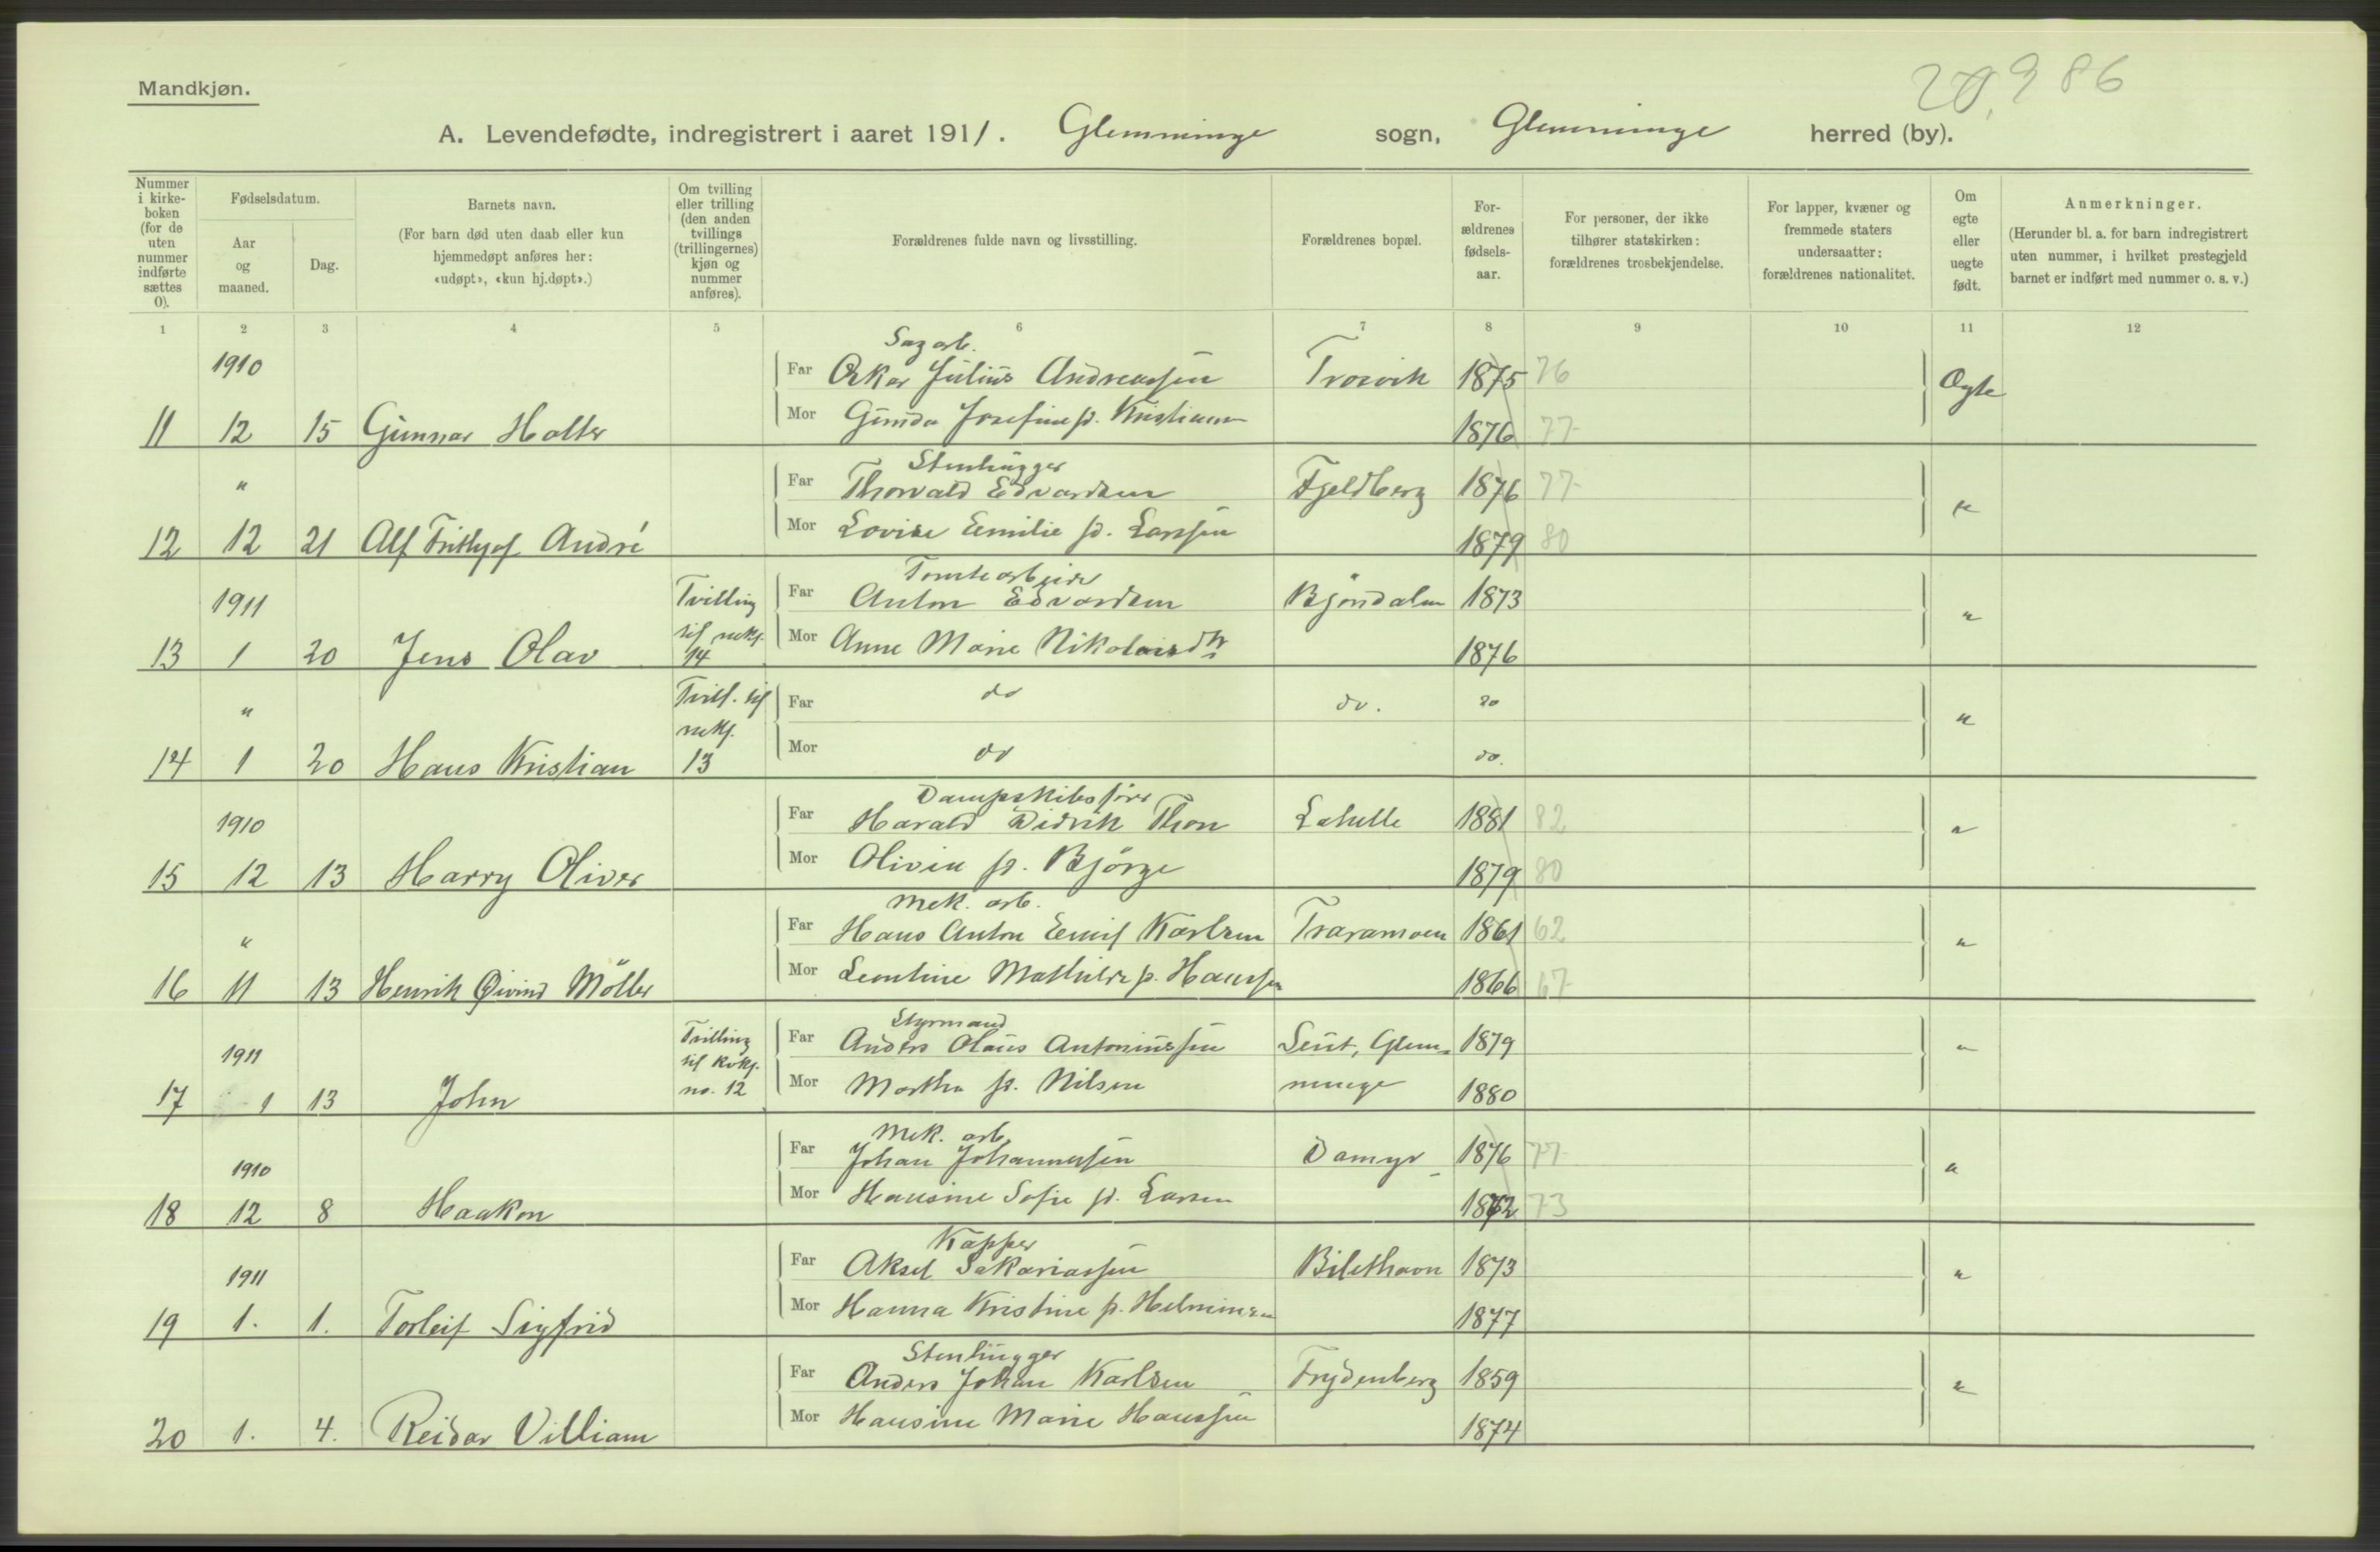 20,986
Mandkjøn.
A. Levendefødte, indregistrert i aaret 1911. Glemminge sogn, Glemminge herred (by).
Nummer i kirke-boken (for de uten nummer indførte sættes 0).
Fødselsdatum.
Aar og maaned.
Dag.
Barnets navn.
(For barn død uten daab eller kun hjemmedøpt anføres her: «udøpt», «kun hj.døpt».)
Om tvilling eller trilling (den anden tvillings (trillingernes) kjøn og nummer anføres).
Forældrenes fulde navn og livsstilling.
Forældrenes bopæl.
For-ældrenes fødsels-aar.
For personer, der ikke tilhører statskirken: forældrenes trosbekjendelse.
For lapper, kvæner og fremmede staters undersaatter: forældrenes nationalitet.
Om egte eller uegte født.
Anmerkninger.
(Herunder bl. a. for barn indregistrert uten nummer, i hvilket prestegjeld barnet er indført med nummer o. s. v.)
1 2 3 4 5 6 7 8 9 10 11 12
Sagarb.
1910 Far Oskar Julius Andreassen Trosvik 1875 76 Ægte
11 12 15 Gunnar Holter Mor Gunda Josefine f. Kristiansen 1876 77
Stenhugger
" Far Thorvald Edvardsen Fjeldberg 1876 77 "
12 12 21 Alf Frithjof André Mor Lovise Emilie f. Larssen 1879 80
Tomtearbeider
1911 Tvilling Far Anton Edvardsen Bjørndalen 1873 "
til mkj.
13 1 20 Jens Olav 14 Mor Anne Marie Nikolaisdtr 1876
" Tvill. til Far do do. do "
mkj.
14 1 20 Hans Kristian 13 Mor do do.
Dampskibsfører
1910 Far Harald Didrik Thon Lahelle 1881 82 "
15 12 13 Harry Oliver Mor Olivia f. Bjørge 1879 80
Mek. arb.
" Far Hans Anton Emil Karlsen Traramoen 1861 62 "
16 11 13 Henrik Øivind Møller Mor Leontine Mathilde f. Hanssen 1866 67
Styrmand
1911 Tvilling Far Anders Olaus Antoniussen Leut, Glem- 1879 "
til kvkj.
17 1 13 John no. 12 Mor Martha f. Nilsen minge 1880
Mek. arb.
1910 Far Johan Johannessen Damyr 1876 77 "
18 12 8 Haakon Mor Hansine Sofie f. Larsen 1872 73
Kapper
1911 Far Aksel Sakariassen Bilethavn 1873 "
19 1. 1. Torleif Sigfrid Mor Hanna Kristine f. Helmimsen 1877
Stenhugger
Far Anders Johan Karlsen Frydenberg 1859 "
20 1. 4. Reidar Villiam Mor Hansine Marie Hanssen 1874